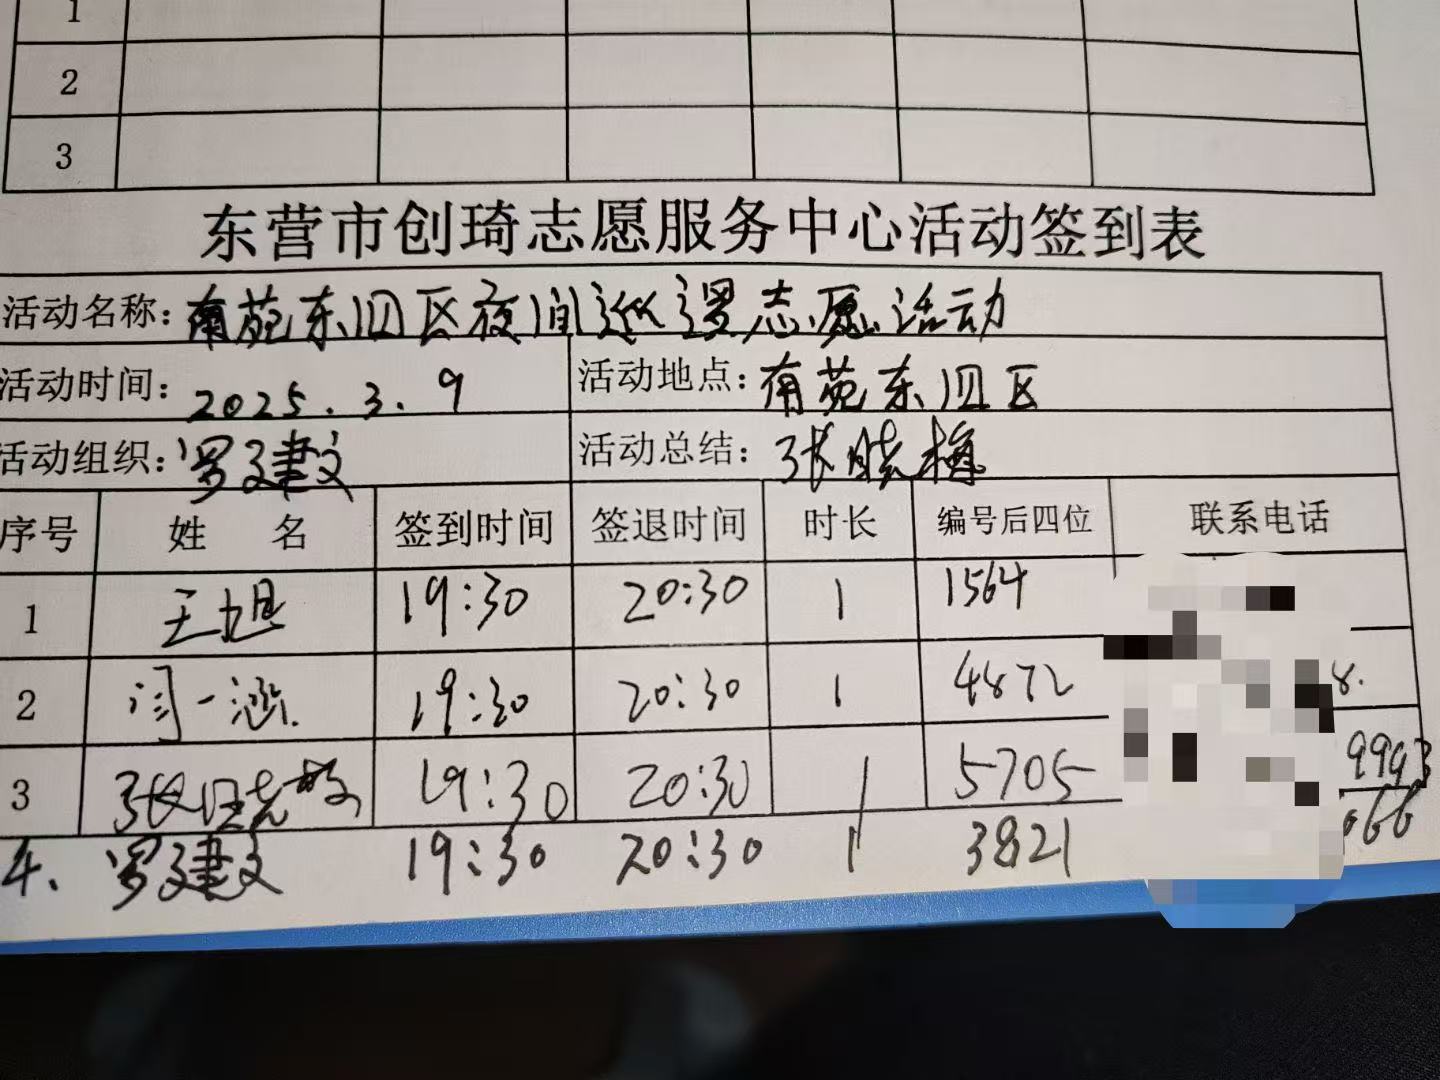 1
2
3
东营市创琦志愿服务中心活动签到表
活动名称：南苑东旧区夜间巡逻志愿活动
活动时间：2025.3.9 活动地点：南苑东旧区
活动组织：罗建文 活动总结：张晓梅
序号 姓名 签到时间 签退时间 时长 编号后四位 联系电话
1 王旭 19:30 20:30 1 1564
2 闫一涵 19:30 20:30 1 4872 8.
3 张 19:30 20:30 1 5705 9993
4. 罗建文 19:30 20:30 1 3821 666